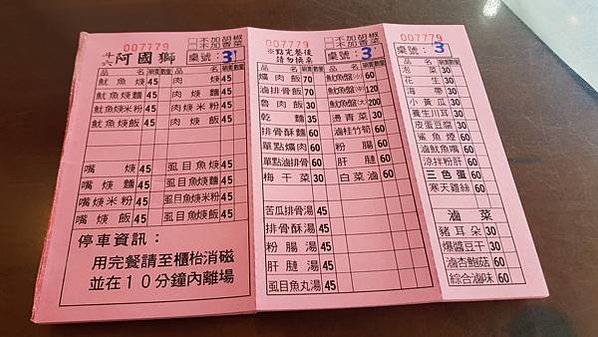 007779
□不加胡椒
□不加香菜
斗六阿國獅 桌號：3
品名 數量 品名 數量
魷魚焿45 肉焿45
魷魚焿麵45 肉焿麵45
魷魚焿米粉45 肉焿米粉45
魷魚焿飯45 肉焿飯45
嘴焿45 虱目魚焿45
嘴焿麵45 虱目魚焿麵45
嘴焿米粉45 虱目魚焿米粉45
嘴焿飯45 虱目魚焿飯45
停車資訊：
用完餐請至櫃枱消磁
並在10分鐘內離場
007779
□不加胡椒
□不加香菜
※點完餐後
請勿換桌
桌號：3
品名 數量 品名 數量
爌肉飯70 魷魚盤(小)60
滷排骨飯70 魷魚盤(中)120
魯肉飯30 魷魚盤(大)200
乾麵35 燙青菜30
排骨酥麵60 滷桂竹筍60
單點爌肉60 粉腸60
單點滷排骨60 肝腱60
梅干菜30 白菜滷60
苦瓜排骨湯45
排骨酥湯45
粉腸湯60
肝腱湯60
虱目魚丸湯45
007779
桌號：3
品名 數量
泡菜30
花生30
海帶30
小黃瓜30
養生川耳30
皮蛋豆腐30
鯊魚煙60
滷魷魚嘴60
涼拌粉肝60
三色蛋60
寒天雞絲60
滷菜
豬耳朵30
爆醬豆干30
滷杏鮑菇60
綜合滷味60